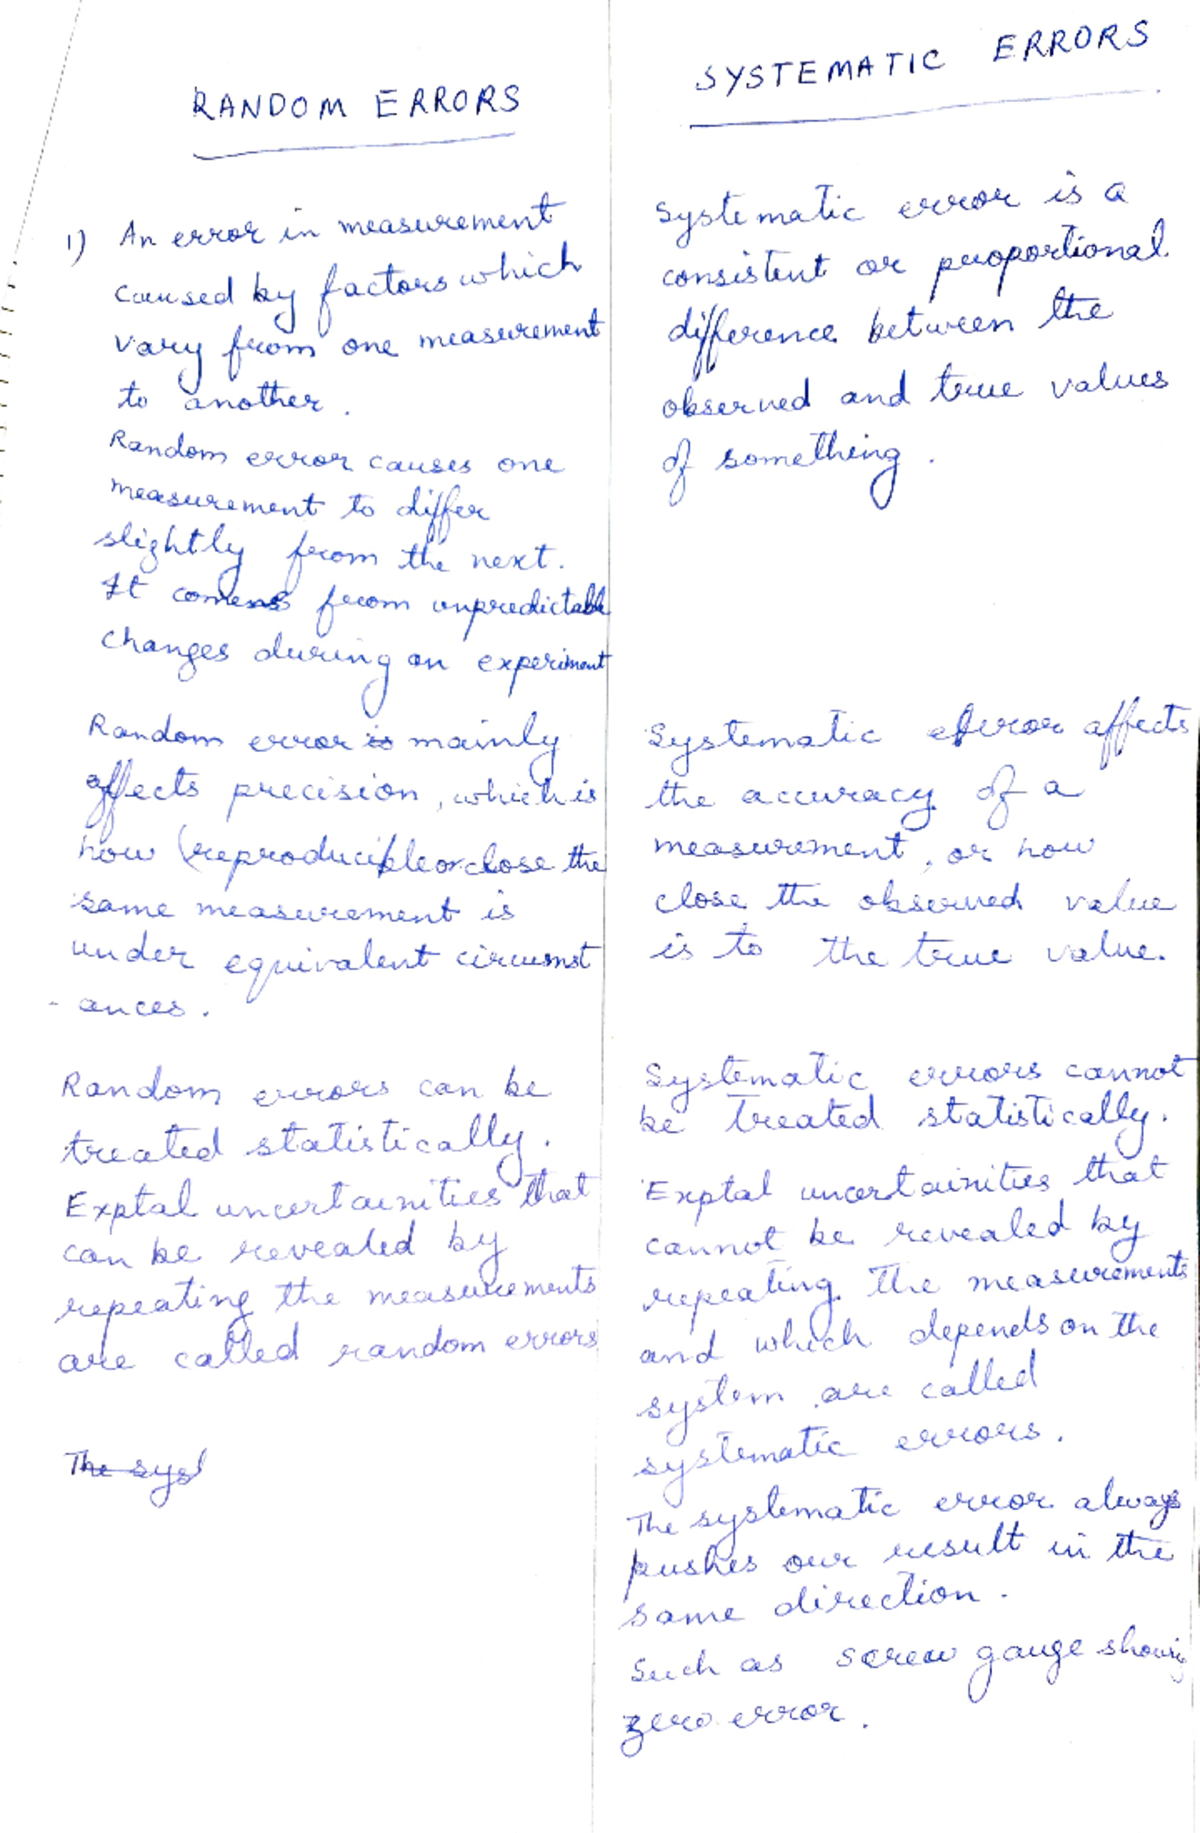 RANDOM ERRORS
1) An error in measurement
caused by factors which
vary from one measurement
to another.
Random error causes one
measurement to differ
slightly from the next.
It comes from unpredictable
changes during an experiment
Random error is mainly
affects precision, which is
how (reproducible or close the
same measurement is
under equivalent circumst
- ances.
Random errors can be
treated statistically.
Exptal uncertainities that
can be revealed by
repeating the measurements
are called random errors
The syst
SYSTEMATIC ERRORS
Systematic error is a
consistent or proportional
difference between the
observed and true values
of something.
Systematic error affects
the accuracy of a
measurement, or how
close the observed value
is to the true value.
Systematic errors cannot
be treated statistically.
Exptal uncertainities that
cannot be revealed by
repeating the measurements
and which depends on the
system are called
systematic errors.
The systematic error always
pushes our result in the
same direction.
Such as screw gauge showing
zero error.